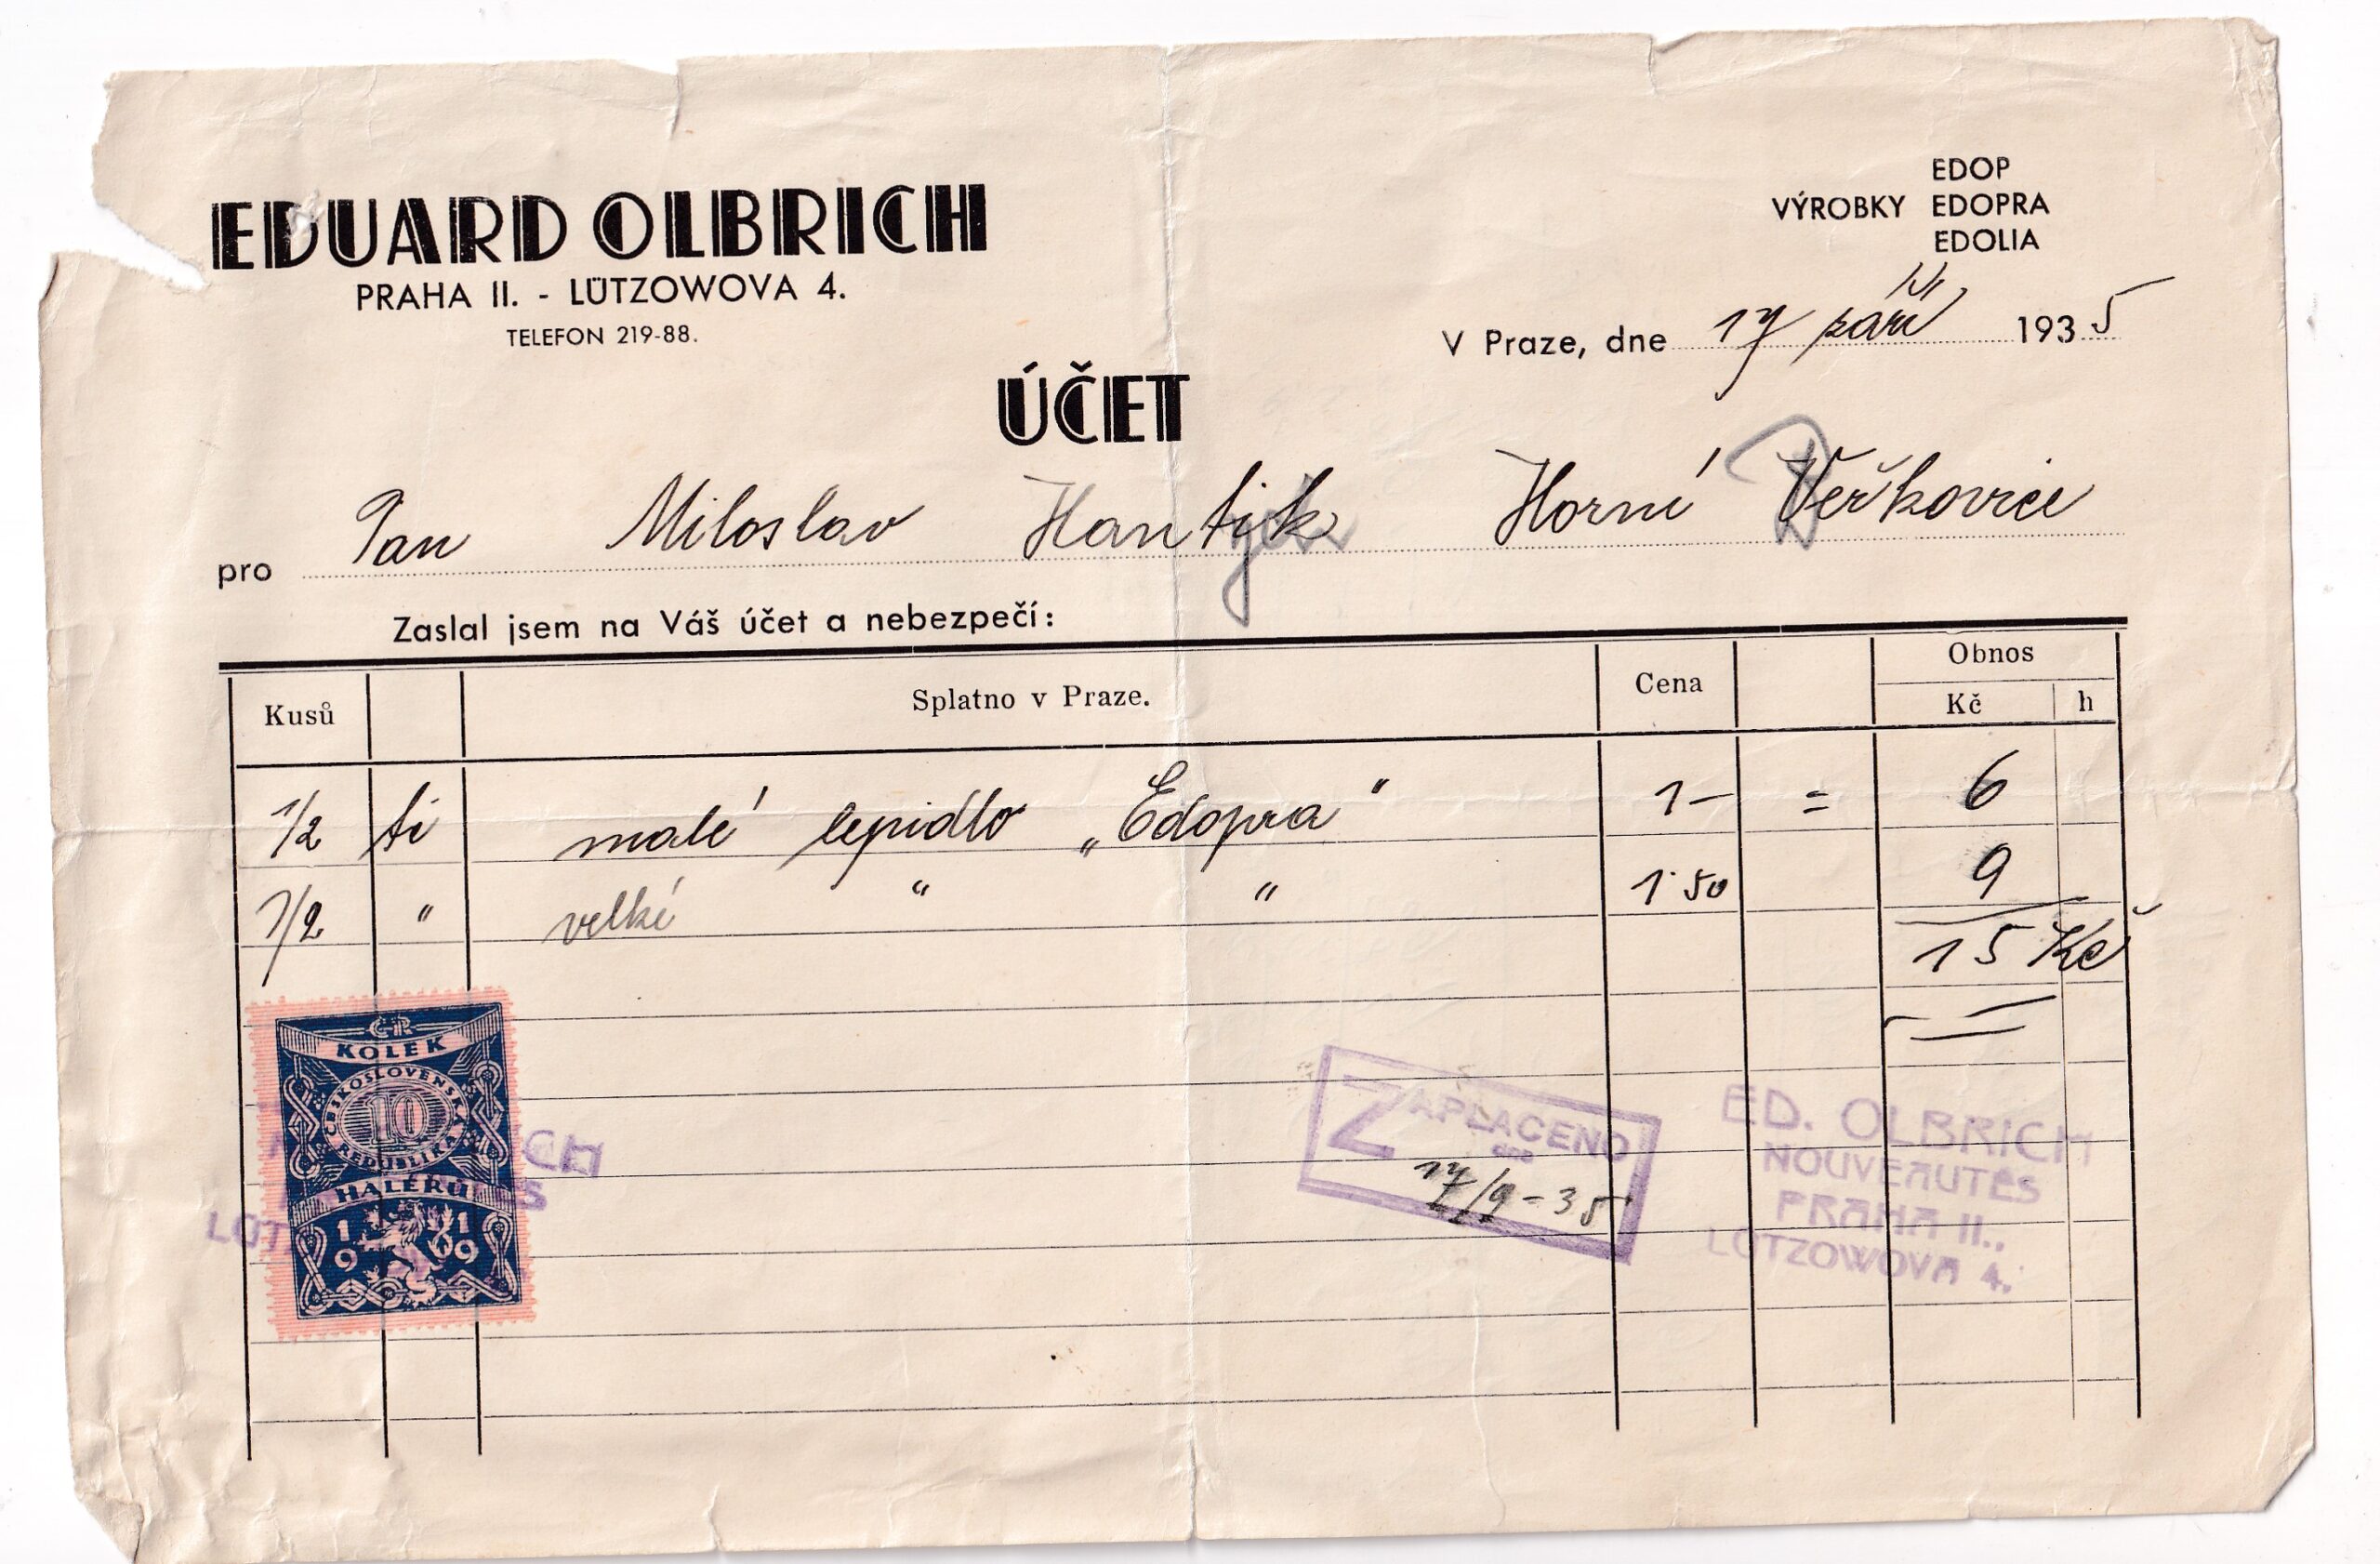 EDUARD OLBRICH
PRAHA II. - LÜTZOWOVA 4.
TELEFON 219-88.
VÝROBKY EDOP
EDOPRA
EDOLIA
V Praze, dne 17 září 1935
ÚČET
pro Pan Miloslav Horní
Zaslal jsem na Váš účet a nebezpečí:
Kusů Splatno v Praze. Cena Obnos
Kč h
1/2 tí malé lepidlo „Edopra" 1- = 6
1/2 " velké " " 1·50 9
15 Kč
ČR
KOLEK
ČESKOSLOVENSKÁ
10
REPUBLIKA
HALÉŘŮ
1919
CH
S
LÜT
ZAPLACENO
dne
17/9-35
ED. OLBRICH
NOUVEAUTÉS
PRAHA II.,
LÜTZOWOVA 4.